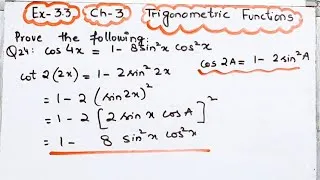 Ex-3.3 Ch-3 Trigonometric Functions
Prove the following:
Q24: cos 4x = 1 - 8 sin²x cos²x
cos 2A = 1 - 2 sin²A
cot 2(2x) = 1 - 2 sin² 2x
= 1 - 2 (sin2x)²
= 1 - 2 [2 sin x cos A]²
= 1 - 8 sin²x cos²x